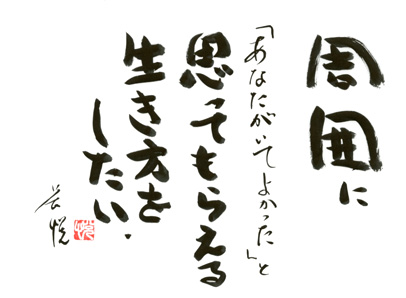 周囲に
「あなたがいてよかった」と
思ってもらえる
生き方を
したい.